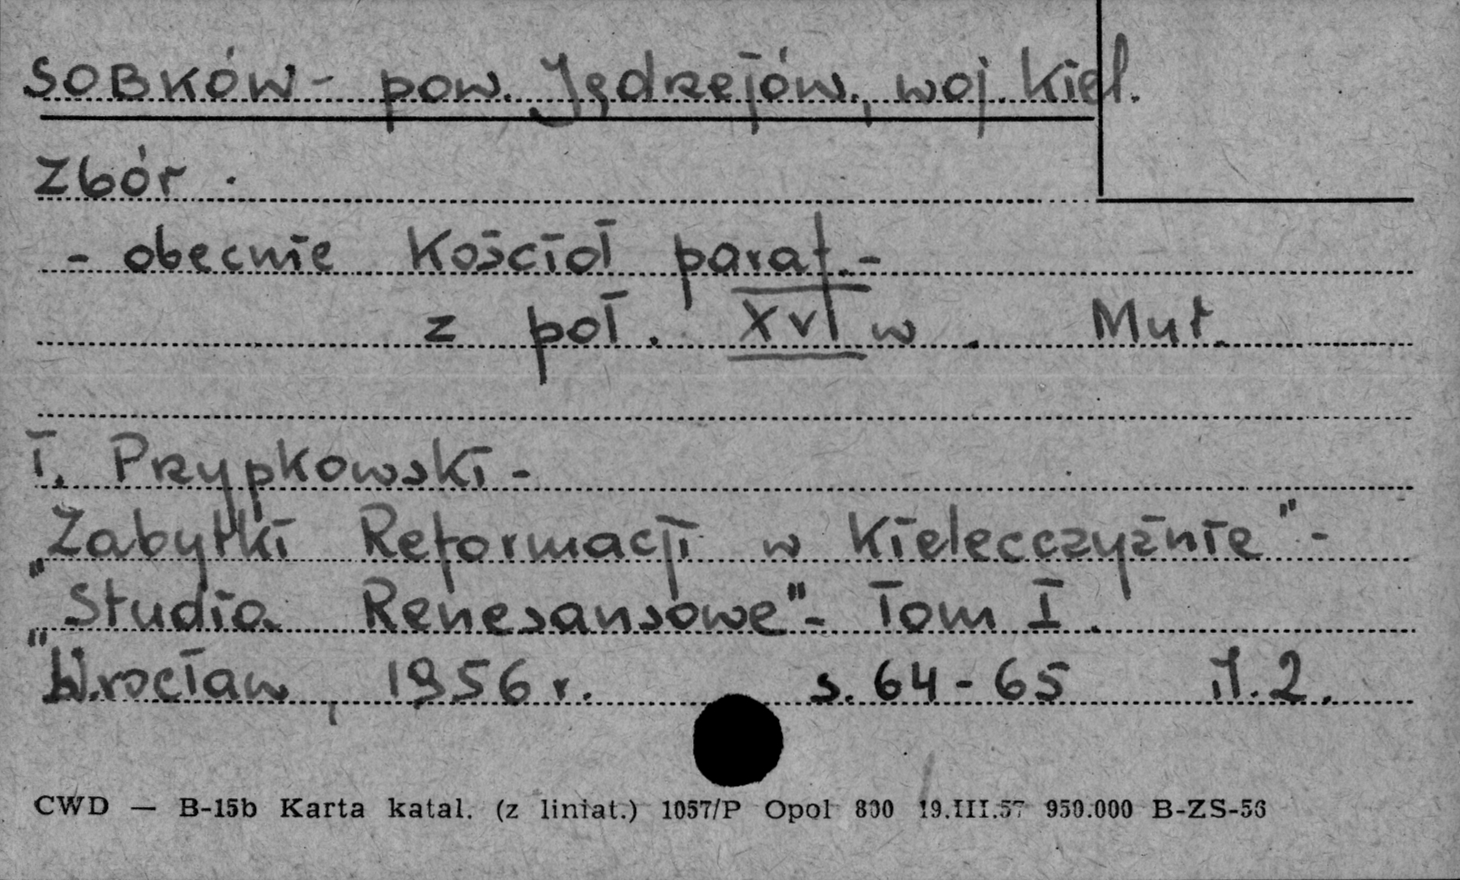 SOBKÓW - pow. Jędrzejów, woj. Kiel.
Zbór.
- obecnie Kościół paraf. -
z poł. XVI w. Mur.
T. Przypkowski -
"Zabytki Reformacji w Kielecczyźnie" -
"Studia Renesansowe" - Tom I.
Wrocław, 1956 r. s. 64-65 il. 2.
CWD — B-15b Karta katal. (z liniat.) 1057/P Opol 800 19.III.57 950.000 B-ZS-56